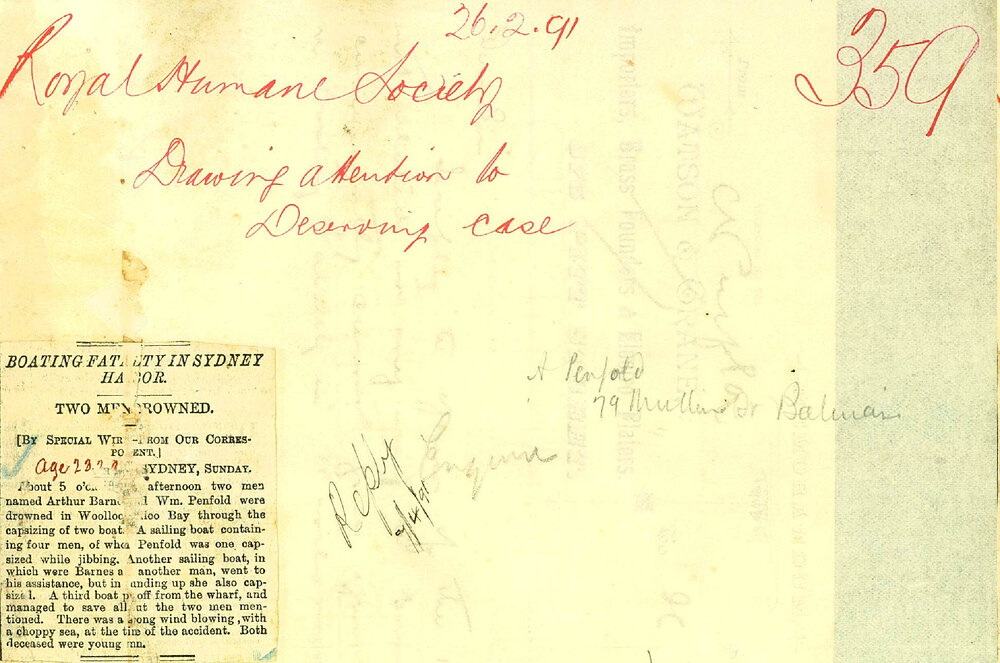 26.2.91
359
Royal Humane Society
Drawing attention to
Deserving case
A Penfold
79 Mullins St Balmain
Enquire
BOATING FAT LTY IN SYDNEY
HA BOR.
TWO MEN ROWNED.
[BY SPECIAL WIR -FROM OUR CORRES-
PO ENT.]
Age 23.2 SYDNEY, SUNDAY.
About 5 o'c afternoon two men
named Arthur Barn d Wm. Penfold were
drowned in Woolloo loo Bay through the
capsizing of two boat. A sailing boat contain-
ing four men, of who Penfold was one cap-
sized while jibbing. Another sailing boat, in
which were Barnes a another man, went to
his assistance, but in unding up she also cap-
sized. A third boat p off from the wharf, and
managed to save all ut the two men men-
tioned. There was a ong wind blowing, with
a choppy sea, at the time of the accident. Both
deceased were young m n.